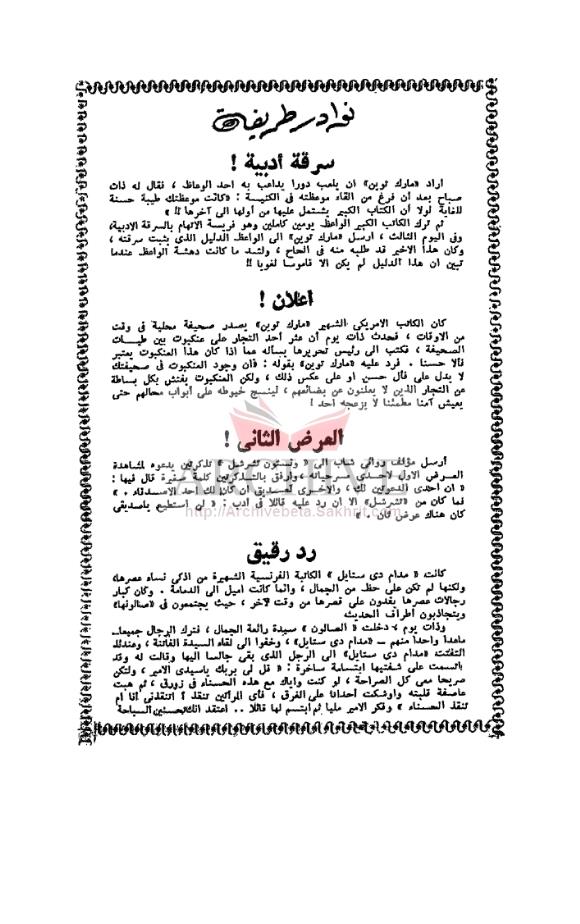 نوادر طريفة
سرقة أدبية !
اراد «مارك توين» ان يلعب دورا يداعب به احد الوعاظ ، فقال له ذات
صباح بعد أن فرغ من القاء موعظته فى الكنيسة : «كانت موعظتك طيبة حسنة
للغاية لولا أن الكتاب الكبير يشتمل عليها من أولها الى آخرها !! »
ثم ترك الكاتب الكبير الواعظ يومين كاملين وهو فريسة الاتهام بالسرقة الادبية،
وفى اليوم الثالث ، ارسل «مارك توين» الى الواعظ الدليل الذى يثبت سرقته ،
وكان هذا الاخير قد طلبه منه فى الحاح ، ولشد ما كانت دهشة الواعظ عندما
تبين ان هذا الدليل لم يكن الا قاموسا لغويا !!
اعلان !
كان الكاتب الامريكى الشهير «مارك توين» يصدر صحيفة محلية فى وقت
من الاوقات ، فحدث ذات يوم أن عثر أحد التجار على عنكبوت بين طيات
الصحيفة ، فكتب الى رئيس تحريرها يسأله عما اذا كان هذا العنكبوت يعتبر
فالا حسنا . فرد عليه «مارك توين» بقوله : «ان وجود العنكبوت فى صحيفتك
لا يدل على فأل حسن او على عكس ذلك ، ولكن العنكبوت يفتش بكل بساطة
عن التجار الذين لا يعلنون عن بضائعهم ، لينسج خيوطه على أبواب محالهم حتى
يعيش آمنا مطمئنا لا يزعجه احد !
العرض الثانى !
أرسل مؤلف روائى شاب الى « ونستون تشرشل » تذكرتين يدعوه لمشاهدة
العرض الاول لاحدى مسرحياته ، وأرفق بالتذكرتين كلمة صغيرة قال فيها :
« ان احدى الدعوتين لك ، والاخرى لصديق ان كان لك أحد الاصدقاء . »
فما كان من «تشرشل» الا أن رد عليه قائلا فى أدب : « لن استطيع ياصديقى
كان هناك عرض ثان . »
ARCHIVE
http://Archivebeta.Sakhrit.com
رد رقيق
كانت « مدام دى ستايل » الكاتبة الفرنسية الشهيرة من اذكى نساء عصرها
ولكنها لم تكن على حظ من الجمال ، وانما كانت اميل الى الدمامة . وكان كبار
رجالات عصرها يفدون على قصرها من وقت لآخر ، حيث يجتمعون فى «صالونها»
ويتجاذبون أطراف الحديث
وذات يوم ، دخلت « الصالون » سيدة رائعة الجمال ، فترك الرجال جميعا
ماعدا واحدا منهم ــ «مدام دى ستايل» ، وخفوا الى لقاء السيدة الفاتنة ، وعندئذ
التفتت «مدام دى ستايل» الى الرجل الذى بقى جالسا اليها وقالت له وقد
ارتسمت على شفتيها ابتسامة ساخرة : « قل لى بربك ياسيدى الامير ، ولتكن
صريحا معى كل الصراحة ، لو كنت واياك مع هذه الحسناء فى زورق ، ثم هبت
عاصفة قلبته واوشكت احدانا على الغرق ، فأى المرأتين تنقذ ؟ أتنقذنى أنا أم
تنقذ الحسناء » وفكر الامير مليا ثم ابتسم لها قائلا .. اعتقد انك تحسنين السباحة